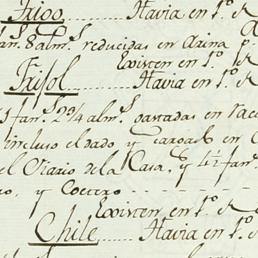 Trigo...... Havia en 1.º de
fan.s 8 alm.s reducidas en Arina p.
Existen en 1.º de
Frisol...... Havia en 1.º de
fan.s 2¾ alm.s gastadas en rac
incluso el dado y cargas en
el Diario de la Casa, y 4½ fan.s
y Cocero
Existen en 1.º de
Chile...... Havia en 1.º de